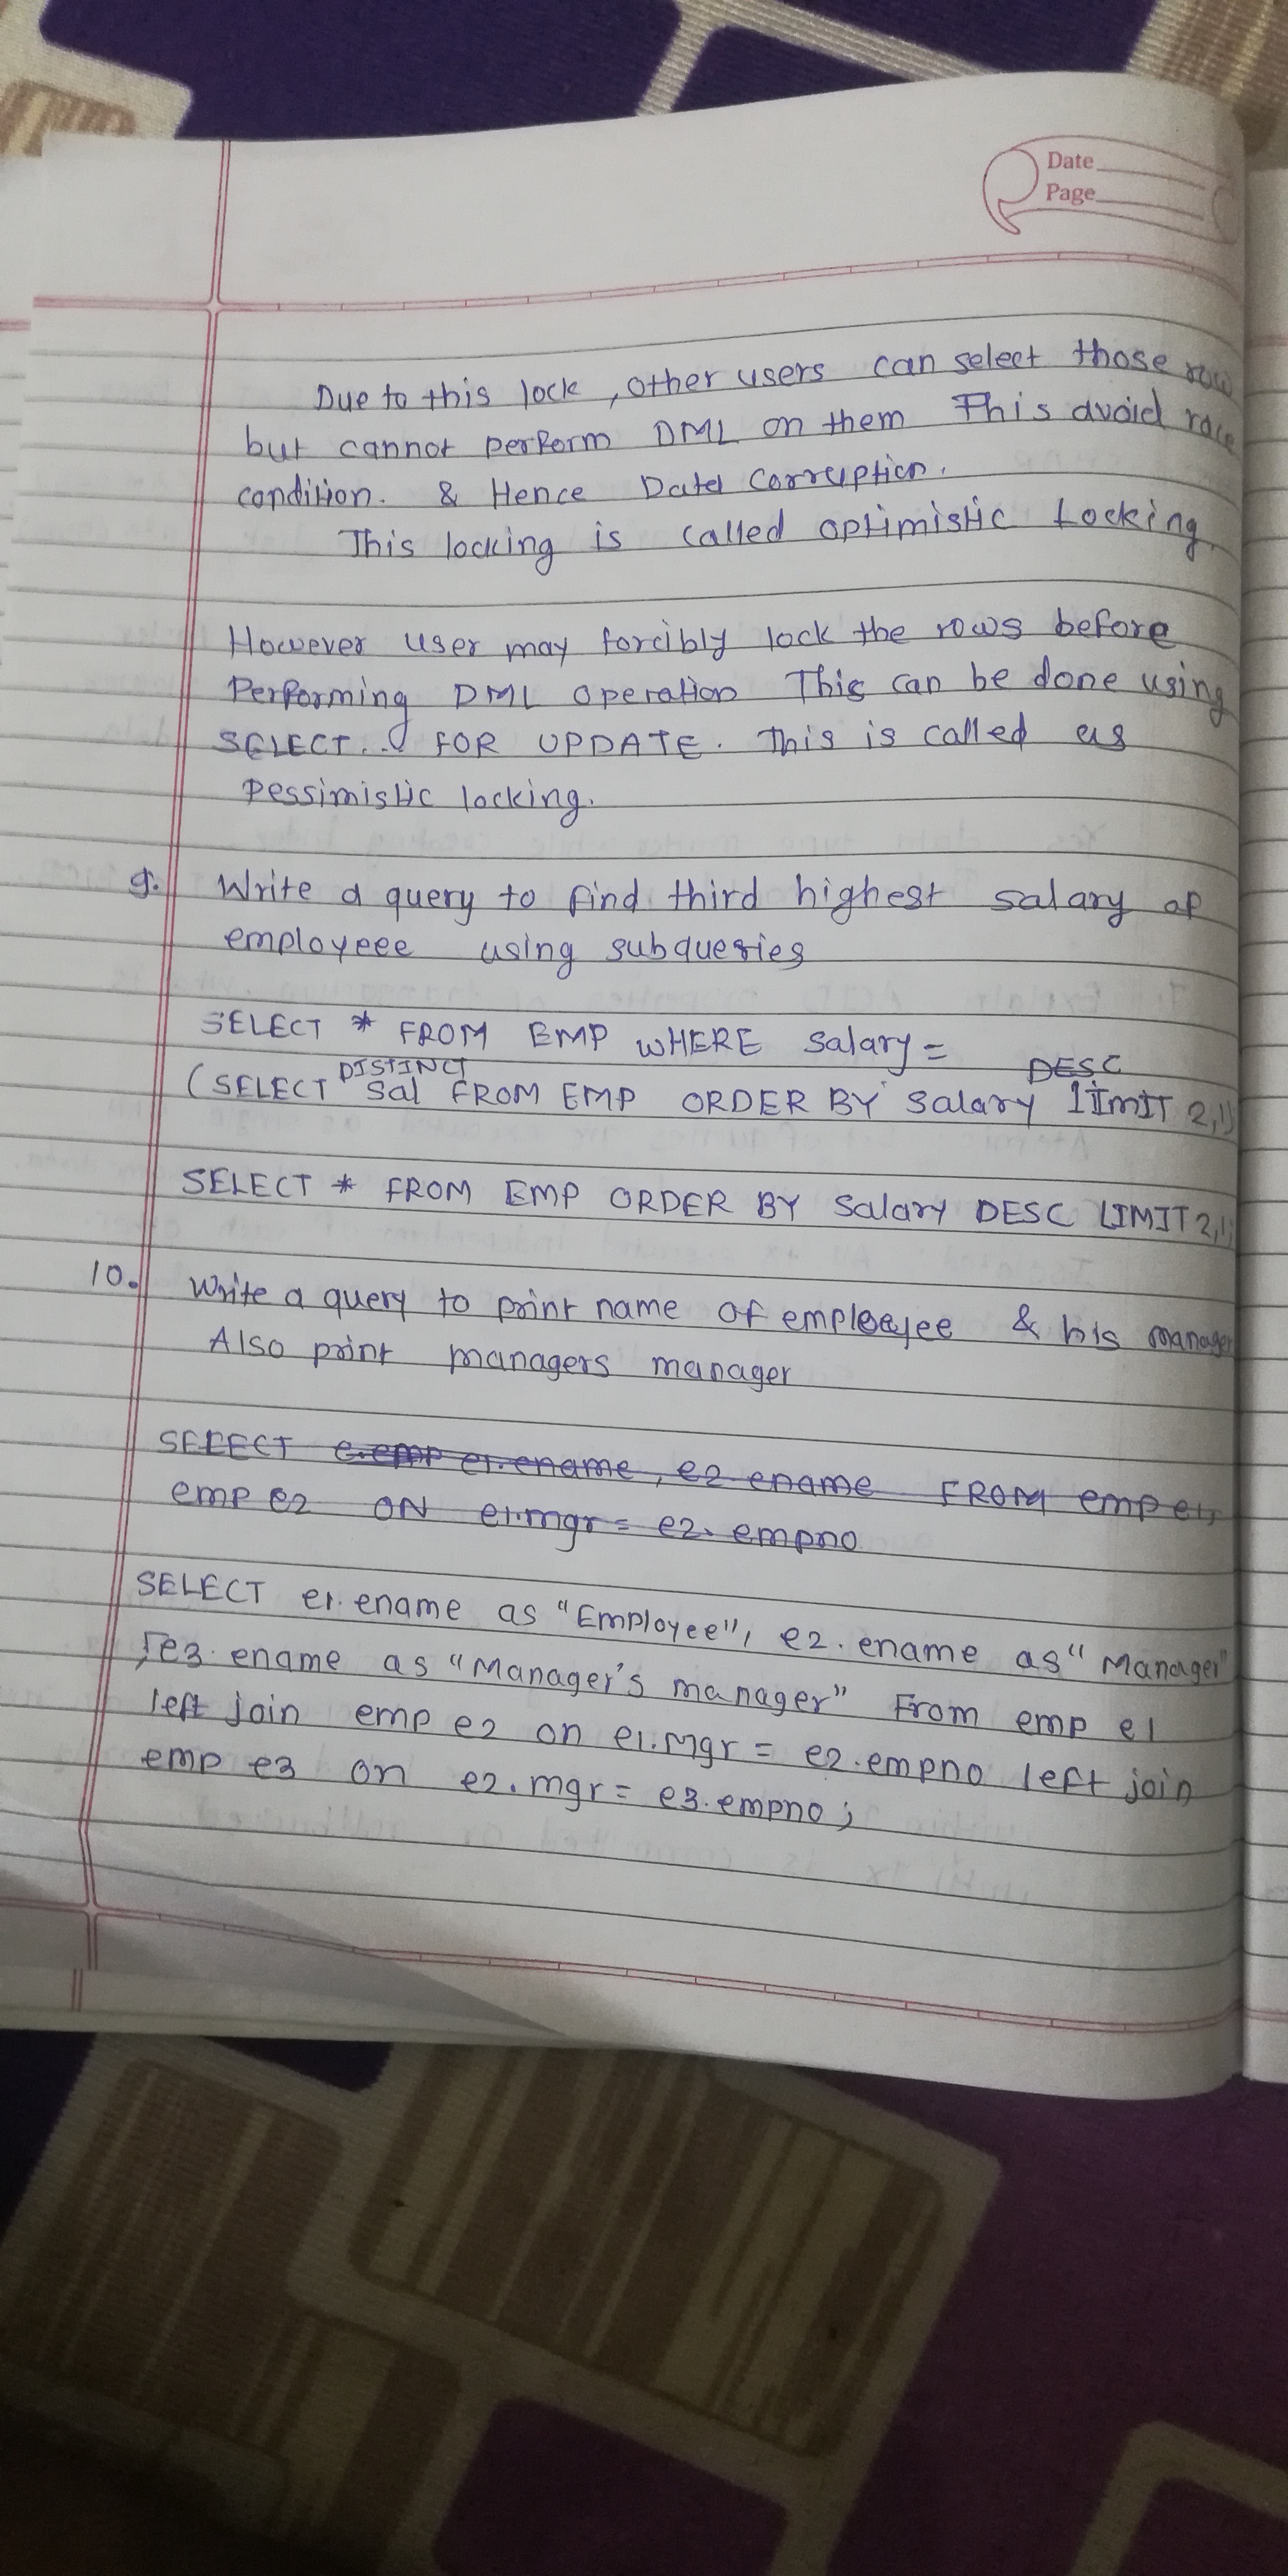 Date
Page
Due to this lock, other users can select those row
but cannot perform DML on them This avoid race
condition. & Hence Data Corruption.
This locking is called optimistic Locking.
However user may forcibly lock the rows before
Performing DML operation This can be done using
SELECT... FOR UPDATE. This is called as
Pessimistic locking.
9. Write a query to find third highest salary of
employeee using subqueries
SELECT * FROM EMP WHERE Salary =
(SELECT DISTINCT Sal FROM EMP ORDER BY Salary DESC limit 2,1)
SELECT * FROM EMP ORDER BY Salary DESC LIMIT 2,1;
10. Write a query to print name of employee & his manager
Also print managers manager
SELECT e1.ename, e2 ename FROM emp e1,
emp e2 ON e1.mgr = e2. empno
SELECT e1. ename as "Employee", e2. ename as "Manager"
, e3. ename as "Manager's manager" From emp e1
left join emp e2 on e1.Mgr = e2.empno left join
emp e3 on e2.mgr = e3.empno;